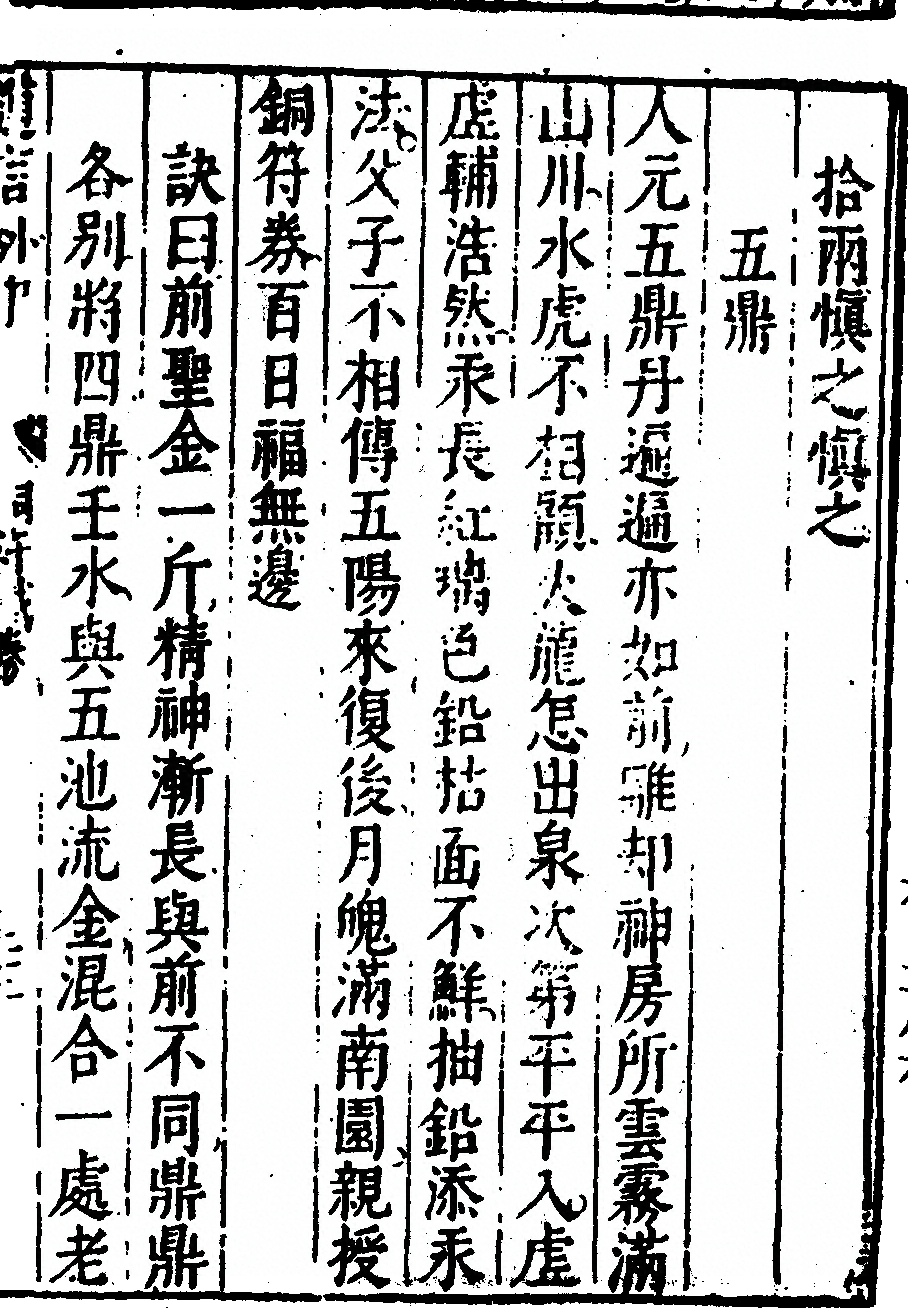 拾兩慎之慎之
五鼎
人元五鼎丹遍遍亦如前離却神房所雲霧滿
山川水虎不相顧火龍怎出泉次第平平入虛
虛輔浩然汞長紅璃色鉛枯面不鮮抽鉛添汞
法父子不相傳五陽來復後月魄滿南園親授
銅符券百日福無邊
訣曰前聖金一斤精神漸長與前不同鼎鼎
各別將四鼎壬水與五池流金混合一處老